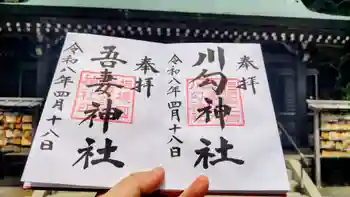 奉拝
川勾神社
令和八年四月十八日
奉拝
吾妻神社
令和八年四月十八日